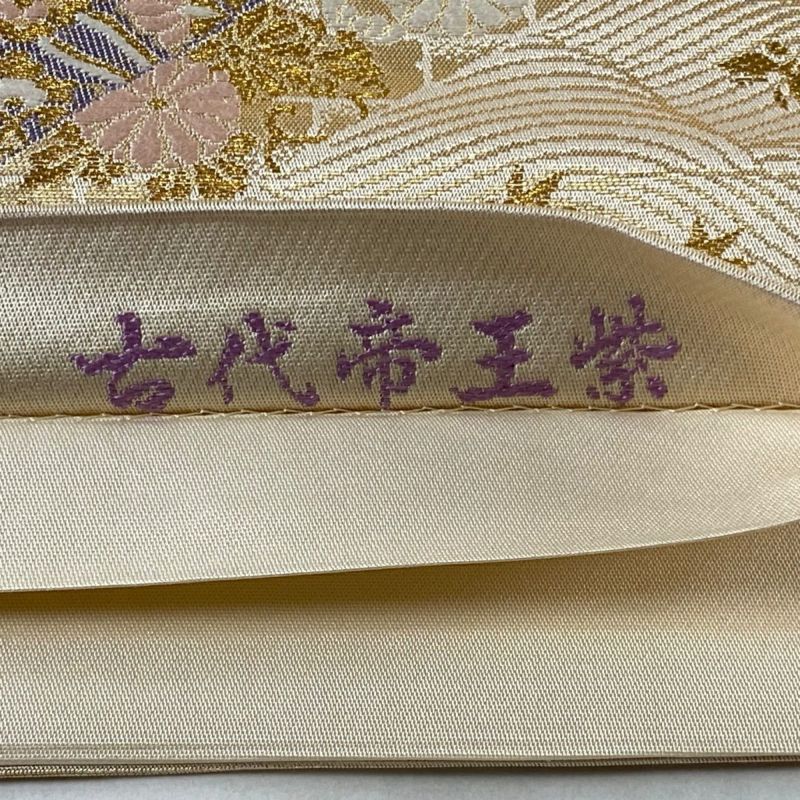 古代帝王紫